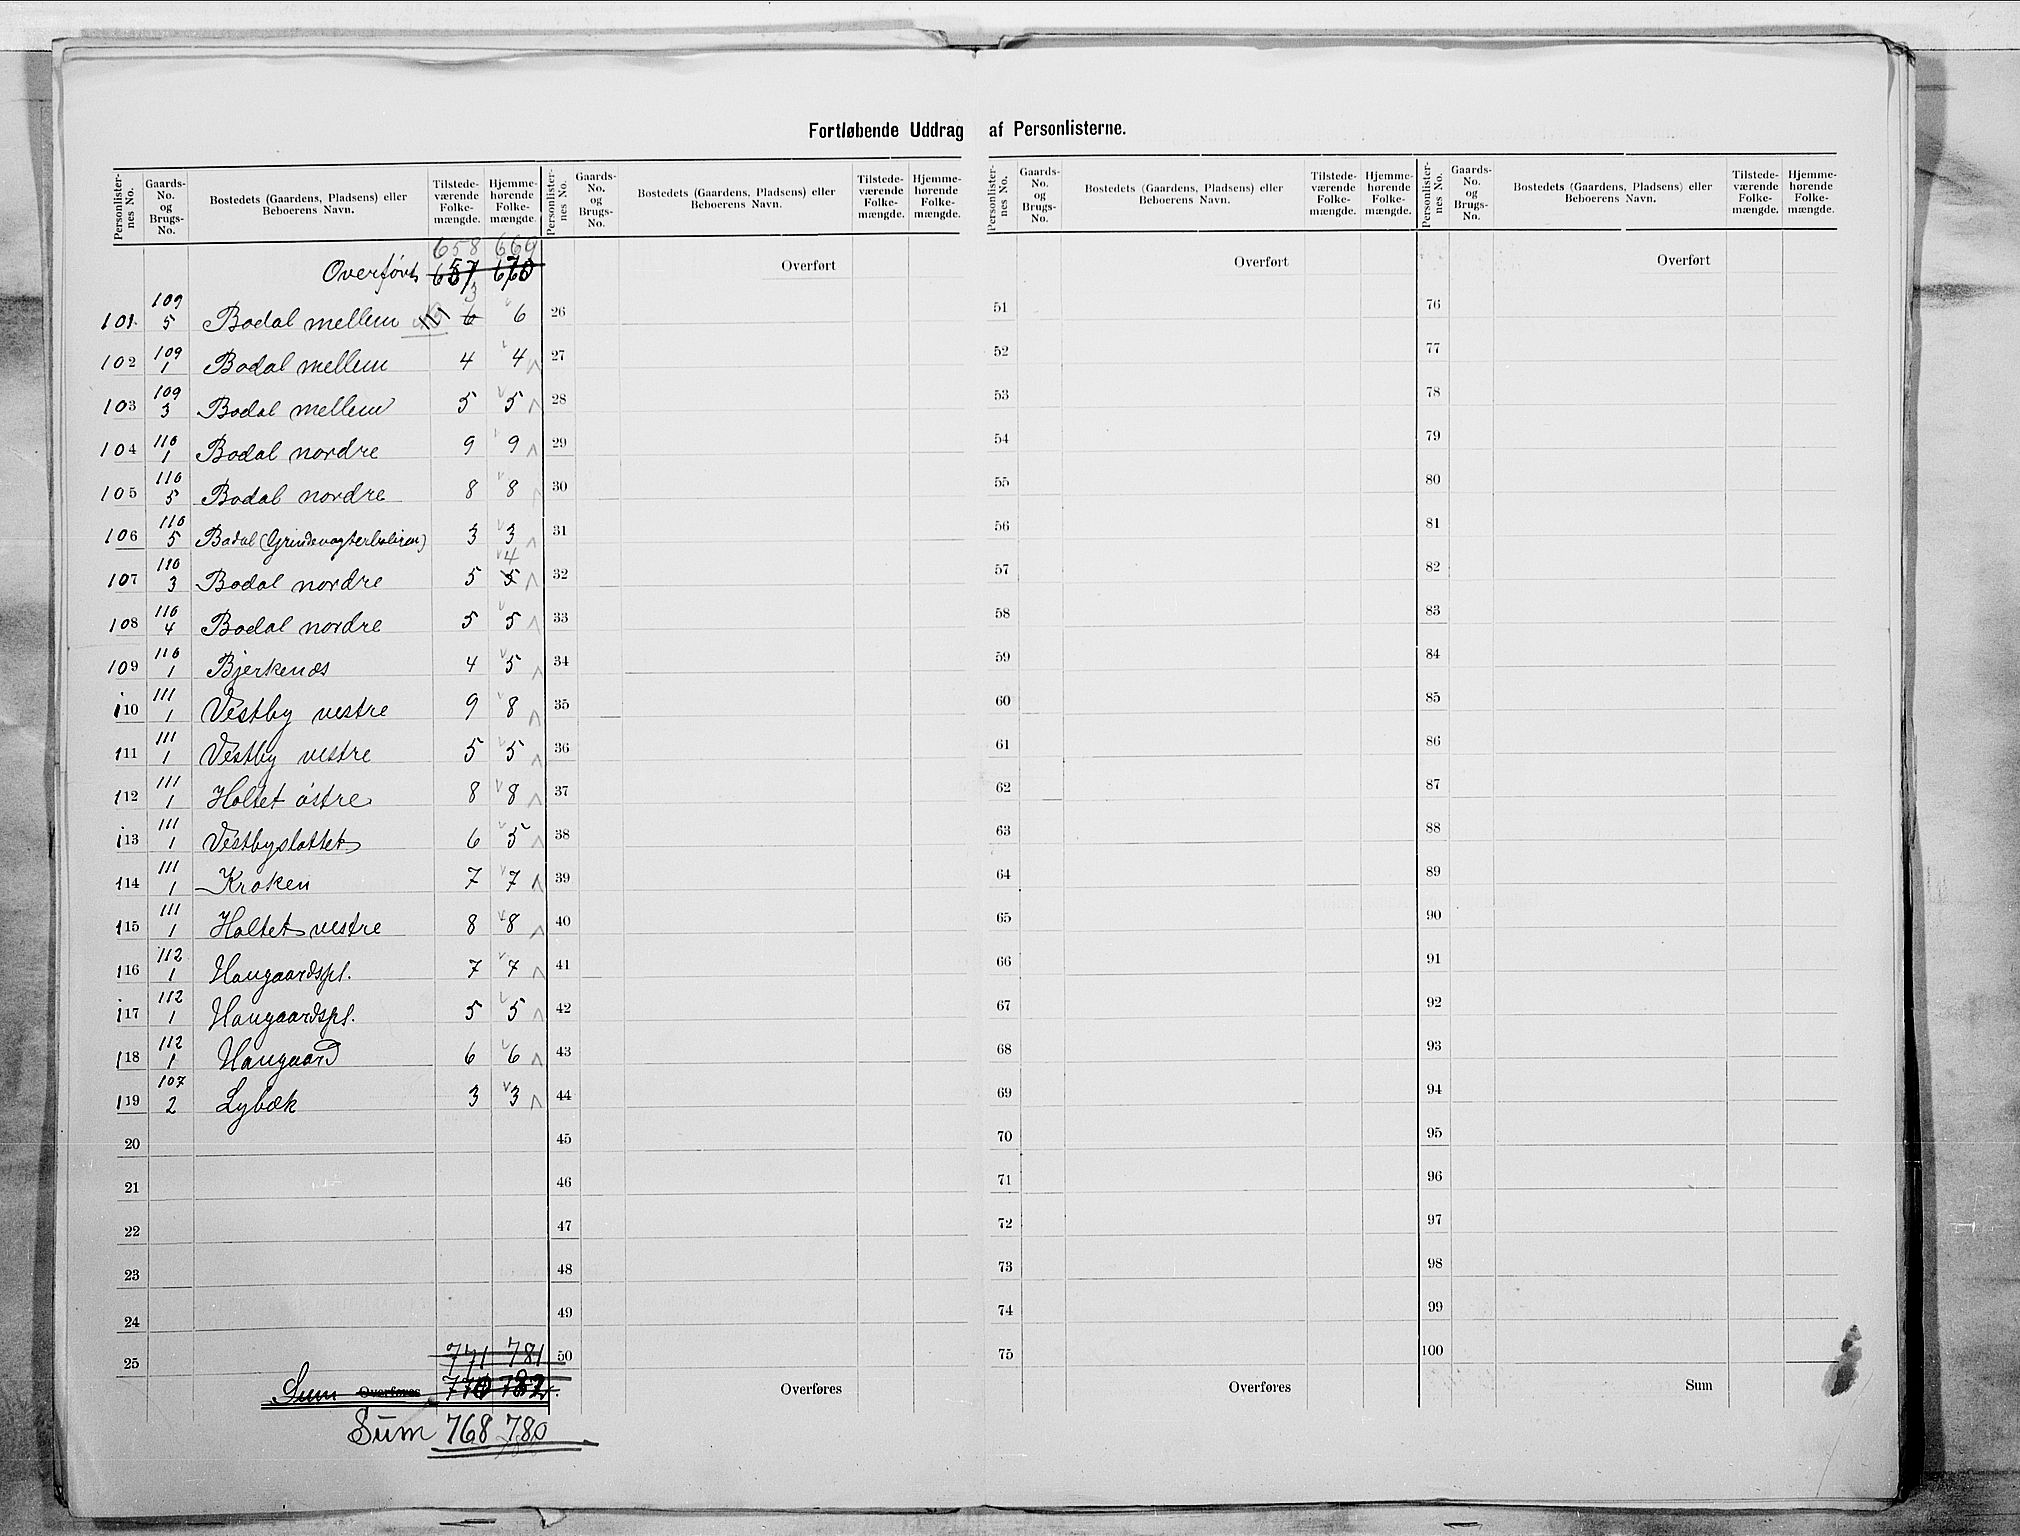 Fortløbende Uddrag af Personlisterne.
Personlister-nes No. Gaards-No. og Brugs-No. Bostedets (Gaardens, Pladsens) eller Beboerens Navn. Tilstede-værende Folke-mængde. Hjemme-hørende Folke-mængde.
658 669
Overført 657 670
3
101. 109/5 Bodal mellem 6 6
102 109/1 Bodal mellem 4 4
103 109/3 Bodal mellem 5 5
104 110/1 Bodal nordre 9 9
105 110/5 Bodal nordre 8 8
106 110/5 Bodal (Grindevogterboligen) 3 3
4
107 110/3 Bodal nordre 5 5
108 110/4 Bodal nordre 5 5
109 110/1 Bjerkenæs 4 5
110 111/1 Vestby vestre 9 8
111 111/1 Vestby vestre 5 5
112 111/1 Holtet østre 8 8
113 111/1 Vestbyslottet 6 5
114 111/1 Kroken 7 7
115 111/1 Holtet vestre 8 8
116 112/1 Haugaardspl. 7 7
117 112/1 Haugaardspl. 5 5
118 112/1 Haugaard 6 6
119 107/2 Lybæk 3 3
20
21
22
23
24
25
771 781
Sum Overføres 770 782
Sum 768 780
Personlister-nes No. Gaards-No. og Brugs-No. Bostedets (Gaardens, Pladsens) eller Beboerens Navn. Tilstede-værende Folke-mængde. Hjemme-hørende Folke-mængde.
Overført
26
27
28
29
30
31
32
33
34
35
36
37
38
39
40
41
42
43
44
45
46
47
48
49
50
Overføres
Personlister-nes No. Gaards-No. og Brugs-No. Bostedets (Gaardens, Pladsens) eller Beboerens Navn. Tilstede-værende Folke-mængde. Hjemme-hørende Folke-mængde.
Overført
51
52
53
54
55
56
57
58
59
60
61
62
63
64
65
66
67
68
69
70
71
72
73
74
75
Overføres
Personlister-nes No. Gaards-No. og Brugs-No. Bostedets (Gaardens, Pladsens) eller Beboerens Navn. Tilstede-værende Folke-mængde. Hjemme-hørende Folke-mængde.
Overført
76
77
78
79
80
81
82
83
84
85
86
87
88
89
90
91
92
93
94
95
96
97
98
99
100
Sum